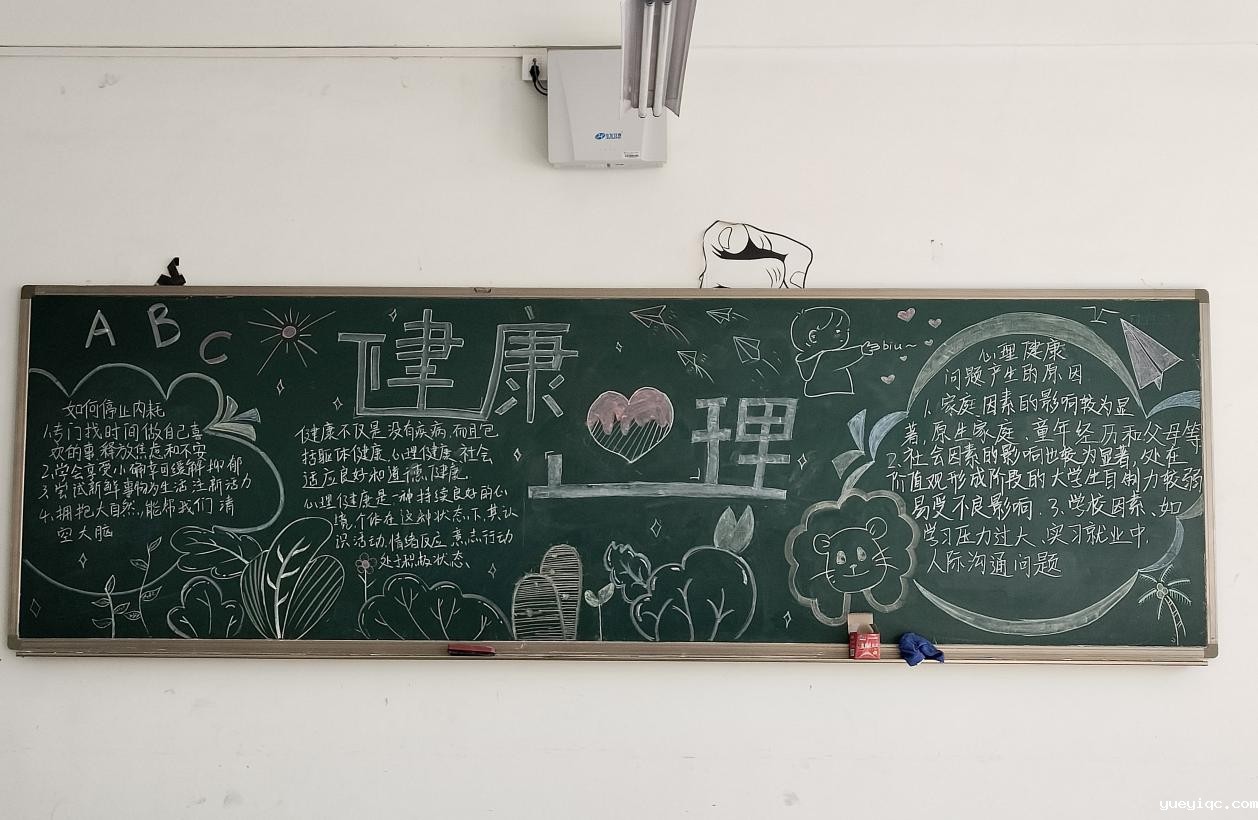 A B C
如何停止内耗
1.专门找时间做自己喜
欢的事释放焦虑和不安
2.学会享受小确幸可缓解抑郁
3.尝试新鲜事物为生活注新活力
4.拥抱大自然,能帮我们清
空大脑
健康
心理
健康不仅是没有疾病,而且包
括躯体健康、心理健康、社会
适应良好和道德健康。
心理健康是一种持续良好的心
境,个体在这种状态下,其认
识活动、情绪反应、意志行动
处于积极状态、
biu~
心理健康
问题产生的原因
1.家庭因素的影响较为显
著,原生家庭、童年经历和父母等
2.社会因素的影响也较为显著,处在
价值观形成阶段的大学生自制力较弱
易受不良影响.3.学校因素、如
学习压力过大、实习就业中,
人际沟通问题
yueyiqc.com